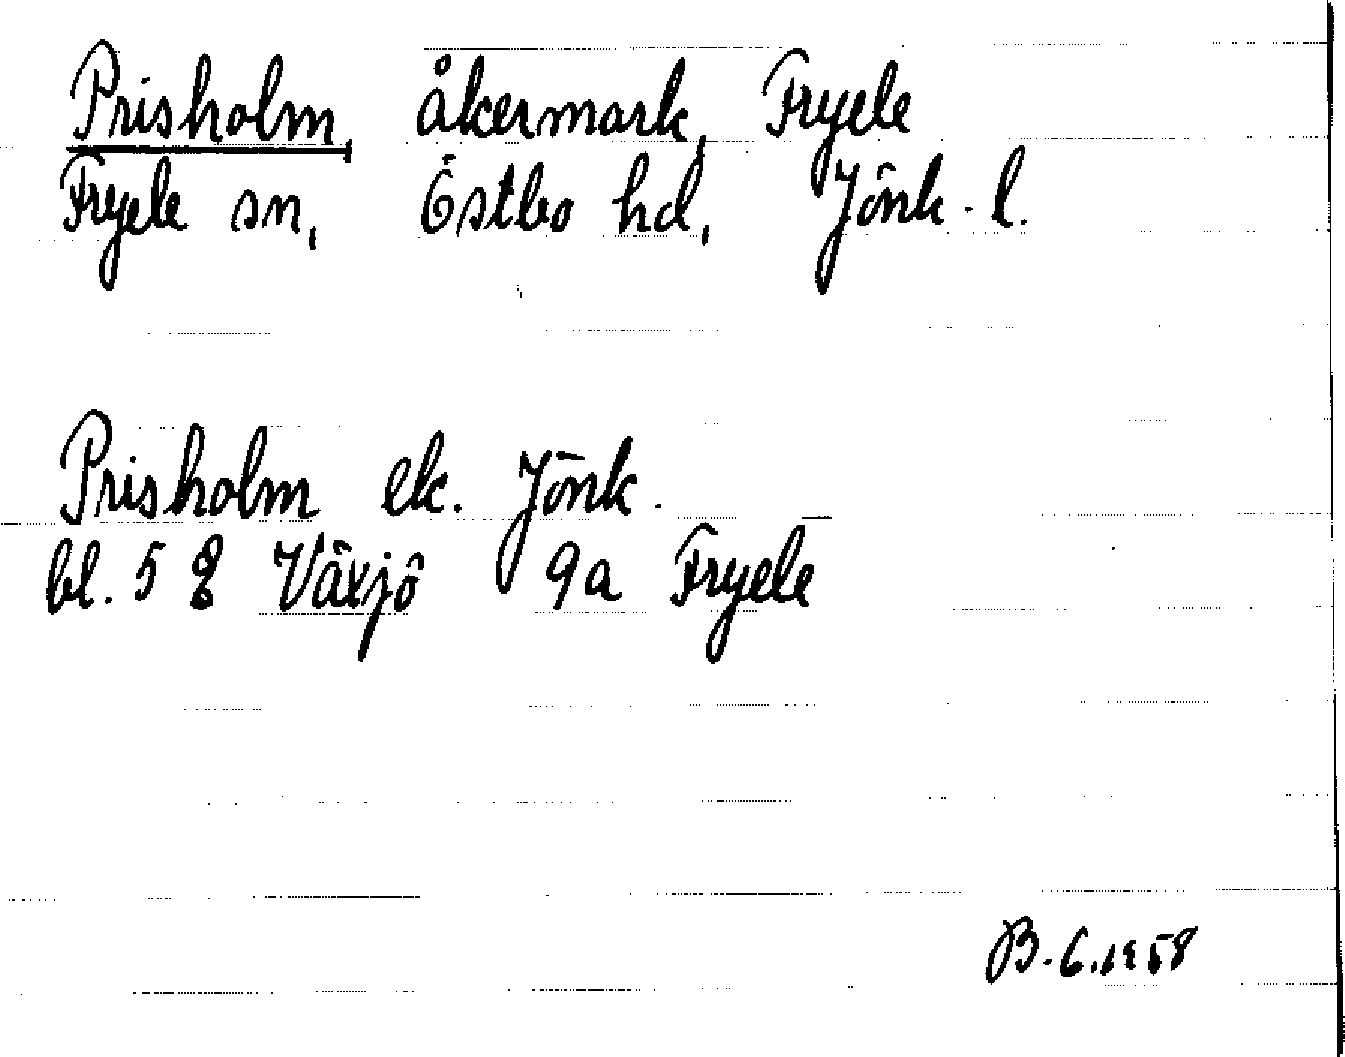 Prisholm, åkermark, Fryele
Fryele sn, Östbo hd, Jönk. l.
Prisholm ek. Jönk.
bl. 5 g Växjö 9a Fryele
B. 6.1958